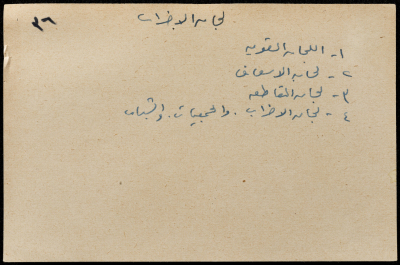 ٣٦
لجان الاضراب
١- اللجان القومية
٢- لجان الاسعاف
٣- لجان المقاطعة
٤- لجان الاضراب. والجمعيات. والشباب